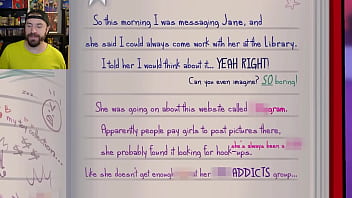 So this morning I was messaging Jane, and
she said I could always come work with her at the Library.
I told her I would think about it... YEAH RIGHT!
Can you even imagine? SO boring!
She was going on about this website called gram.
Apparently people pay girls to post pictures there,
she's always been a
she probably found it looking for hook-ups.
Like she doesn't get enough at her ADDICTS group...